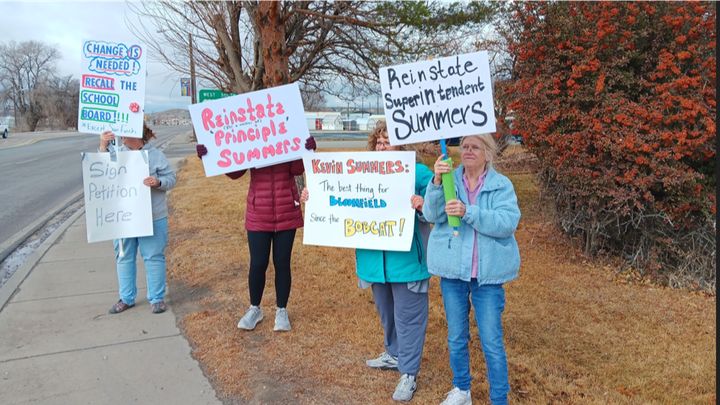 CHANGE IS
NEEDED!
RECALL THE
SCHOOL
BOARD!!!
Sign
Petition
Here
WEST
Reinstate
'Principle'
Summers
KEVIN SUMMERS:
The best thing for
BLOOMFIELD
Since the
BOBCAT!
ReinState
SuperinTendent
Summers